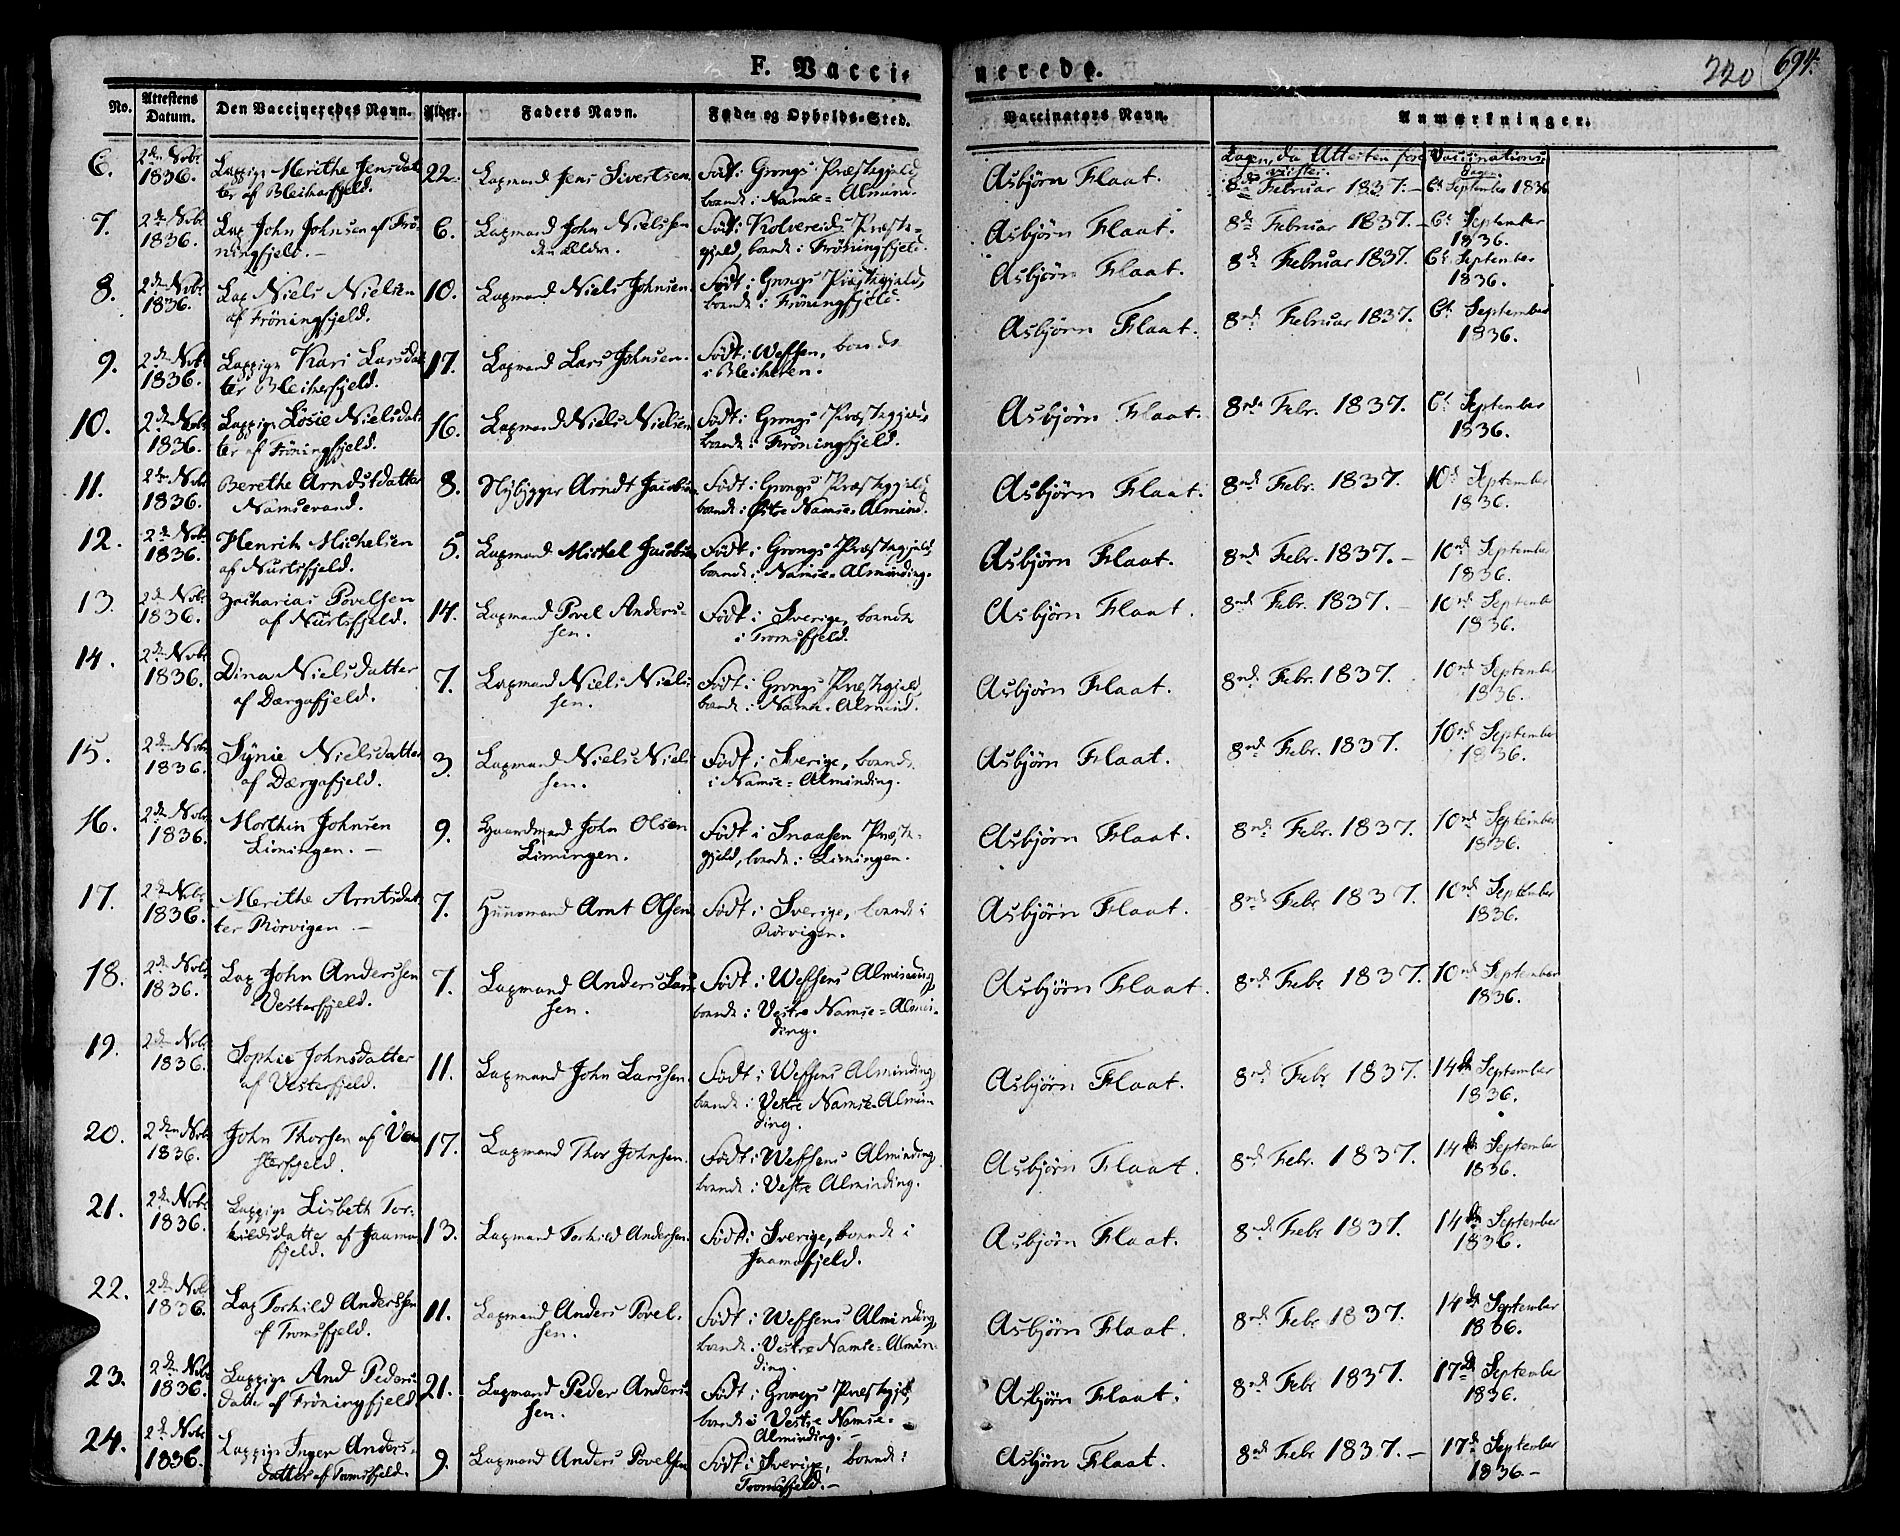 F. Vaccinerede.
220 694.
No. Attestens Datum. Den Vaccineredes Navn. Alder. Faders Navn. Føde- og Opholds-Sted. Vaccinators Navn. Anmærkninger.
Dagen, da Attesten Vaccinations
6. 2den Novbr 1836. Lappige Merithe Jensdatter af Bleikarfjeld. 22. Lapmand Jens Sivertsen. Født i Grongs Præstegjeld, boende i Namse-Almind. Asbjørn Flaat. 8de Februar 1837.- 6te September 1836
7. 2den Novbr 1836. Lap John Johnsen af Frøningfjeld.- 6. Lapmand John Nielssen den Ældre. Født i Kolvereids Præstegjeld, boende i Frøningfjeld. Asbjørn Flaat. 8de Februar 1837.- 6te September 1836.
8. 2den Novbr 1836. Lap Niels Nielsen af Frøningfjeld. 10. Lapmand Niels Johnsen. Født i Grongs Præstegjeld, boende i Frøningfjeld. Asbjørn Flaat. 8de Februar 1837. 6te September 1836.
9. 2den Novbr 1836. Lappige Kari Larsdatter Bleikerfjeld. 17. Lapmand Lars Johnsen. Født i Wefsen, boende i Bleikeren. Asbjørn Flaat. 8de Februar 1837. 6te September 1836.
10. 2den Novbr 1836. Lappige Losie Nielsdatter af Frøningfjeld. 16. Lapmand Niels Nielsen Født i Grongs Præstegjeld boende i Frøningfjeld. Asbjørn Flaat. 8de Febr. 1837. 6te September 1836.
11. 2den Novbr 1836. Berethe Arndtsdatter Namsevand. 8. Nybygger Arndt Jacobsen. Født i Grongs Præstegjeld boende i Østre Namse-Almind. Asbjørn Flaat. 8de Febr. 1837. 10de September 1836.
12. 2den Novbr 1836. Henrik Michelsen af Nurtsfjeld. 5. Lapmand Mickel Jacobsen Født i Grongs Præstegjeld boende i Namse-Alminding. Asbjørn Flaat. 8de Febr. 1837.- 10de September 1836.
13. 2den Novbr 1836. Zacharias Povelsen af Nurtsfjeld. 14. Lapmand Povel Anderssen. Født i Sverige, boende i Tromsfjeld. Asbjørn Flaat. 8de Febr. 1837.- 10de September 1836.
14. 2den Novbr 1836. Dina Nielsdatter af Dærgafjeld. 7. Lapmand Niels Nielssen. Født i Grongs Præstegjeld, boende i Namse-Almind. Asbjørn Flaat. 8de Febr. 1837. 10de September 1836.
15. 2den Novbr 1836. Synie Nielsdatter af Dærgafjeld. 3. Lapmand Niels Nielssen. Født i Sverige, boende i Namse-Alminding. Asbjørn Flaat. 8de Febr. 1837. 10de September 1836.
16. 2den Novbr 1836. Morthin Johnsen Limingen.- 9. Gaardmand John Olsen Limingen. Født i Snaasen Præstegjeld, boende i Limingen. Asbjørn Flaat. 8de Febr. 1837. 10de September 1836.
17. 2den Novbr 1836. Merithe Arntsdatter Rørvigen.- 7. Huusmand Arnt Olsen Født i Sverige, boende i Rørvigen. Asbjørn Flaat. 8de Febr 1837. 10de September 1836.
18. 2den Novbr 1836. Lap John Anderssen Vesterfjeld. 7. Lapmand Anders Larssen. Født i Wefsens Alminding, boende i Vestre Namse-Alminding. Asbjørn Flaat. 8de Febr 1837. 10de September 1836.
19. 2den Novbr 1836. Sophie Johnsdatter af Vesterfjeld. 11. Lapmand John Larssen. Født i Wefsens Alminding boende i Vestre Namse-Alminding. Asbjørn Flaat. 8de Febr 1837. 14de September 1836.
20. 2den Novbr 1836. John Thorsen af Vesterfjeld. 17. Lapmand Thor Johnsen. Født i Wefsens Alminding, boende i Vestre Alminding. Asbjørn Flaat. 8de Febr. 1837. 14de September 1836.
21. 2den Novbr 1836. Lappige Lisbeth Torkildsdatter af Jaamafjeld. 13. Lapmand Torkild Andersen. Født i Sverige, boende i Jaamafjeld. Asbjørn Flaat. 8de Febr 1837. 14de September 1836.
22. 2den Novbr 1836. Lap Torkild Anderssen af Tromsfjeld. 11. Lapmand Anders Povelsen. Født i Wefsens Alminding, boende i Vestre Namse-Alminding. Asbjørn Flaat. 8de Febr 1837. 14de September 1836.
23. 2den Novbr 1836. Lappige And Pedersdatter af Frøningfjeld 21. Lapmand Peder Anderssen. Født i Grongs Præstegjd, boende i Vestre Namse-Alminding.- Asbjørn Flaat. 8de Febr 1837. 17de September 1836.
24. 2den Novbr 1836. Lappige Inger Andersdatter af Tromsfjeld. 9. Lapmand Anders Povelsen Født i Sverige, boende i Tromsfjeld.- Asbjørn Flaat. 8de Febr 1837.- 17de September 1836.-